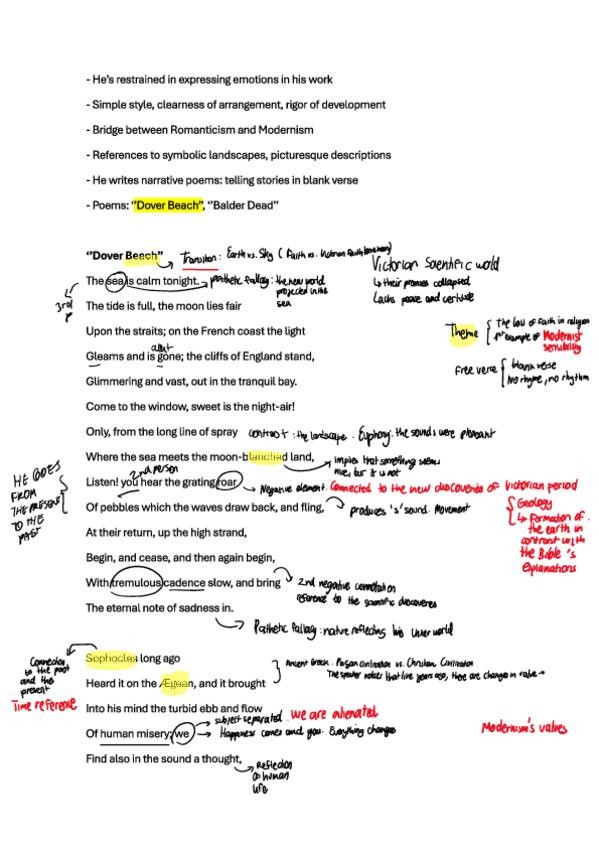 - He's restrained in expressing emotions in his work
- Simple style, clearness of arrangement, rigor of development
- Bridge between Romanticism and Modernism
- References to symbolic landscapes, picturesque descriptions
- He writes narrative poems: telling stories in blank verse
- Poems: "Dover Beach", "Balder Dead"
"Dover Beach"
Transition: Earth vs. Sky (Faith vs. Victorian
The sea is calm tonight.
3rd P
pathetic fallacy: the new world
projected in the
sea
Victorian Scientific world
↳ their promises collapsed
Lacks peace and certitude
The tide is full, the moon lies fair
Upon the straits; on the French coast the light
Theme
the loss of faith in religion
1st example of Modernist
sensibility
allit
Gleams and is gone; the cliffs of England stand,
Free verse
blank verse
no rhyme, no rhythm
Glimmering and vast, out in the tranquil bay.
Come to the window, sweet is the night-air!
Only, from the long line of spray
contrast: the landscape. Euphony: the sounds were pleasant
Where the sea meets the moon-blanched land,
implies that something seems
nice, but it is not
2nd person
HE GOES
FROM
THE PRESENT
TO THE
PAST
Listen! you hear the grating roar
Negative element. Connected to the new discoveries of Victorian period
Of pebbles which the waves draw back, and fling,
produces 's' sound. Movement
Geology
↳ Formation of
the earth in
contrast with
the Bible's
explanations
At their return, up the high strand,
Begin, and cease, and then again begin,
With tremulous cadence slow, and bring
2nd negative connotation
reference to the scientific discoveries
The eternal note of sadness in.
Pathetic fallacy: nature reflecting his inner world
Connection
to the past
and the
present
Time reference
Sophocles long ago
Ancient Greek. Pagan civilization vs. Christian Civilization
The speaker notices that years ago, there are change in value
Heard it on the Ægean, and it brought
Into his mind the turbid ebb and flow
subject separated. We are alienated
Of human misery; we
Happiness comes and goes. Everything changes
Modernism's values
Find also in the sound a thought,
Reflection
on human
life